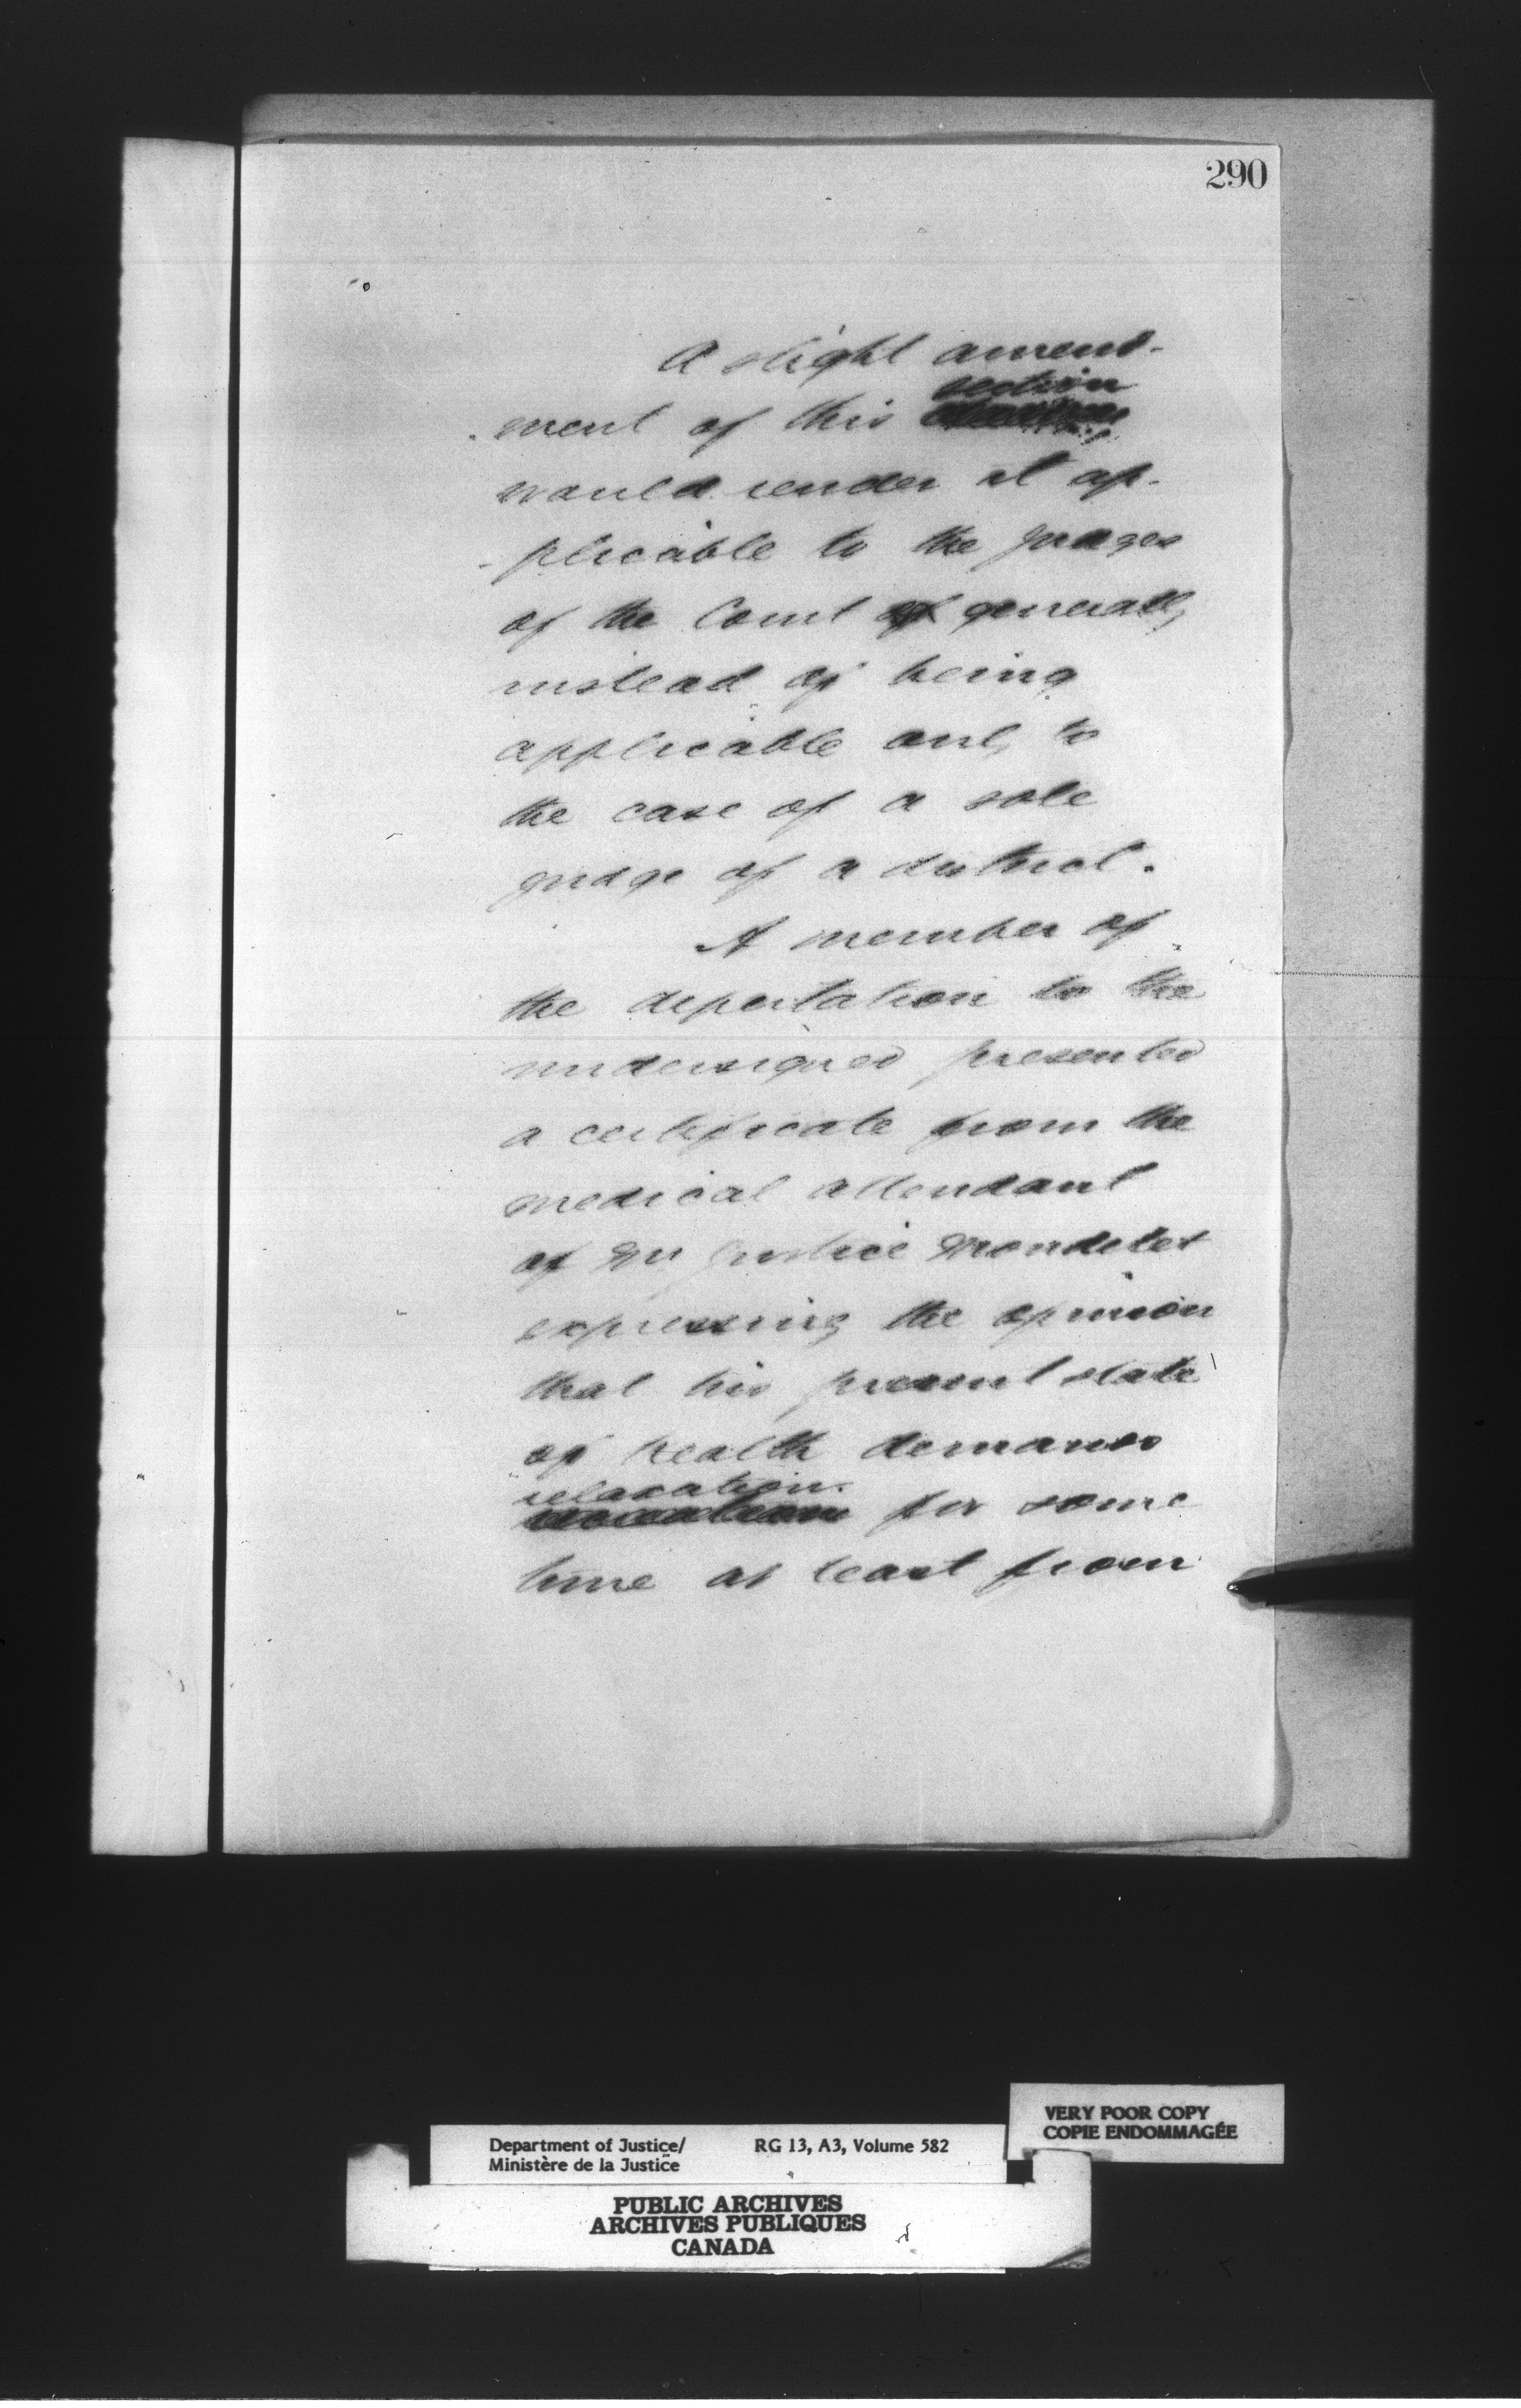 290
A slight amend-
-ment of this section
would render it ap-
-plicable to the judges
of the Court generally
instead of being
applicable only to
the case of a sole
judge of a district.
A member of
the deputation to the
undersigned presented
a certificate from the
medical attendant
of Mr Justice Mondelet
expressing the opinion
that his present state
of health demands
relaxation
for some
time at least from
VERY POOR COPY
COPIE ENDOMMAGÉE
Department of Justice/ RG 13, A3, Volume 582
Ministère de la Justice
PUBLIC ARCHIVES
ARCHIVES PUBLIQUES
CANADA